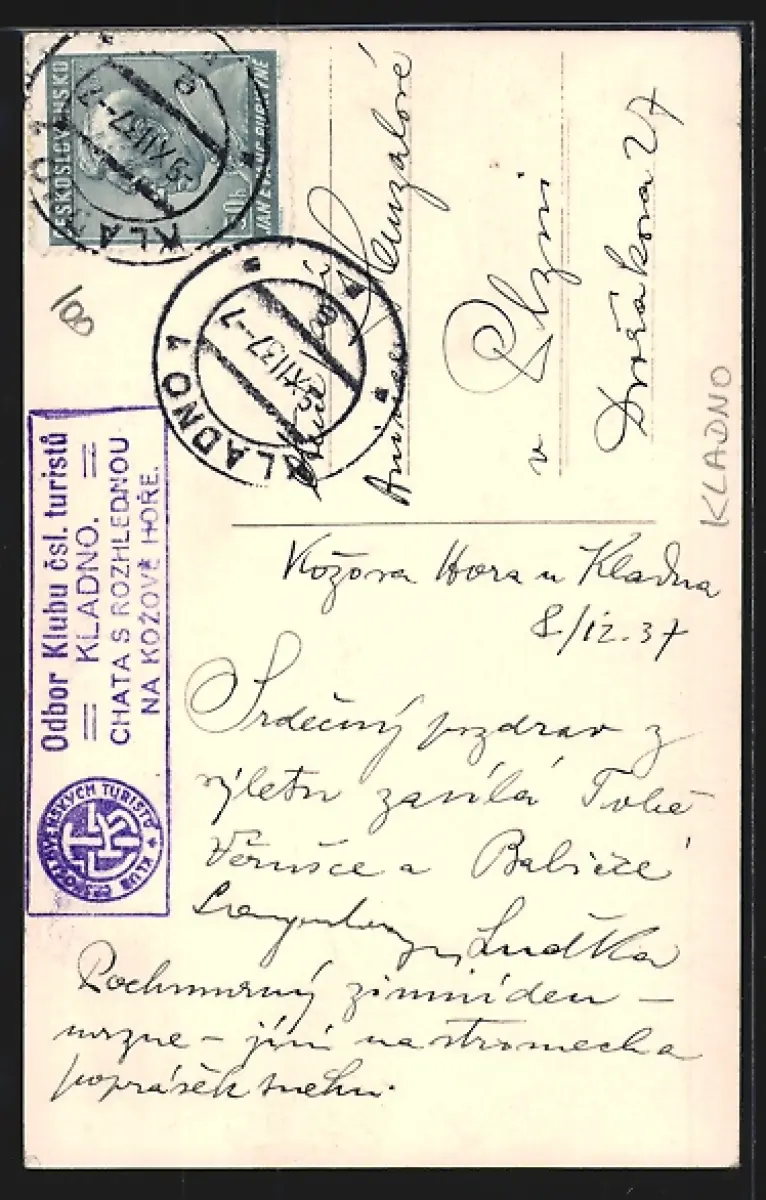 ČESKOSLOVENSKO
50h
JAN EVANG. PURKYNĚ
KLADNO 1
-9.XII.37-7
KLADNO 1
-9.XII.37-7
100
Odbor Klubu čsl. turistů
= KLADNO. =
CHATA S ROZHLEDNOU
NA KOŽOVĚ HOŘE.
KLUB ČESKOSLOVENSKÝCH TURISTŮ
v Plzni
Dvořákova 27
KLADNO
Kožova Hora u Kladna
8./12.37
Srdečný pozdrav z
výletu zasílá Tobě
Věrušce a Babičce
Luďka
Pochmurný zimní den –
mrzne – jíní na stromech a
poprášek sněhu.